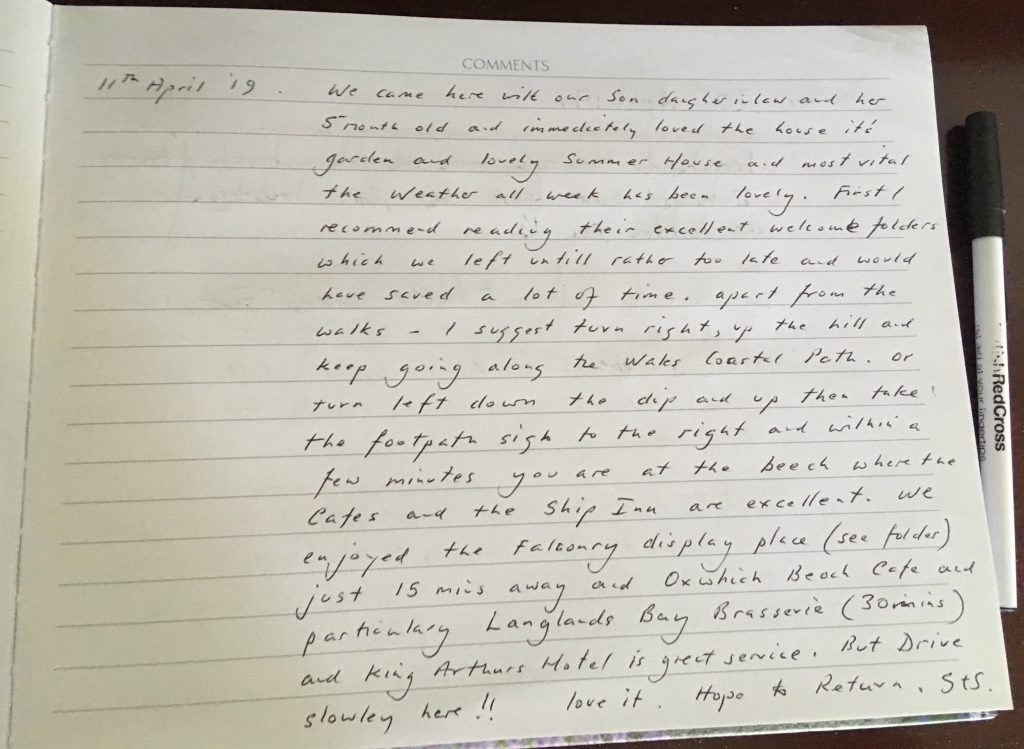 COMMENTS
11th April '19. We came here with our Son daugher inlaw and her
5 month old and immediately loved the house it's
garden and lovely Summer House and most vital
the Weather all week has been lovely. First I
recommend reading their excellent welcome folders
which we left untill rather too late and would
have saved a lot of time. apart from the
walks - I suggest turn right, up the hill and
keep going along the Wales Coastal Path. or
turn left down the dip and up then take
the footpath sign to the right and within a
few minutes you are at the beech where the
Cafes and the Ship Inn are excellent. We
enjoyed the Falconry display place (see folder)
just 15 mins away and Oxwhich Beach Cafe and
particulary Langlands Bay Brasserie (30 mins)
and King Arthurs Hotel is great service. But Drive
slowley here!! love it. Hope to Return. StS.
RedCross